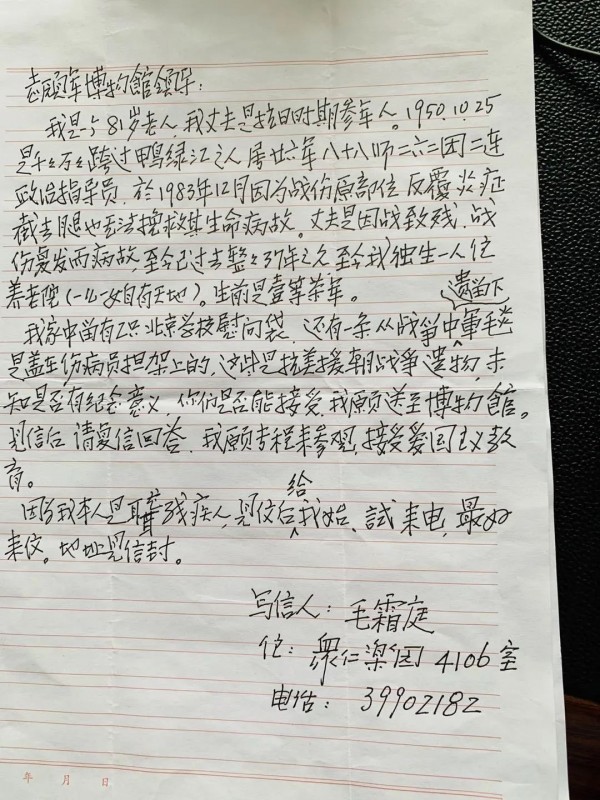 志愿军博物館领导：
我是个81岁老人，我丈夫是抗日时期参军人。1950.10.25
是千千万万跨过鴨绿江之人，属廿六军八十八师二六二团二连
政治指导员，於1983年12月因为战伤原部位反覆炎症
截去腿也无法挽救其生命病故。丈夫是因战致残，战
伤复发而病故，至今已过去整整37年之久，至今我独生一人住
养老院（一儿一女自有天地）。生前是壹等荣军。
遗留下
我家中留有2只北京学校慰问袋，还有一条从战爭中軍毛毯
是盖在伤病员担架上的，这些是抗美援朝战爭遗物，未
知是否有纪念意义，你们是否能接受，我愿送至博物館。
見信后，请复信回答，我愿专程来参观，接受爱国主义教
育。
给
因为我本人是聋残疾人，見信后我始、試来电，最好
来信。地址見信封。
写信人：毛霜庭
住：眾仁樂园 4106室
电话：39902182
年 月 日